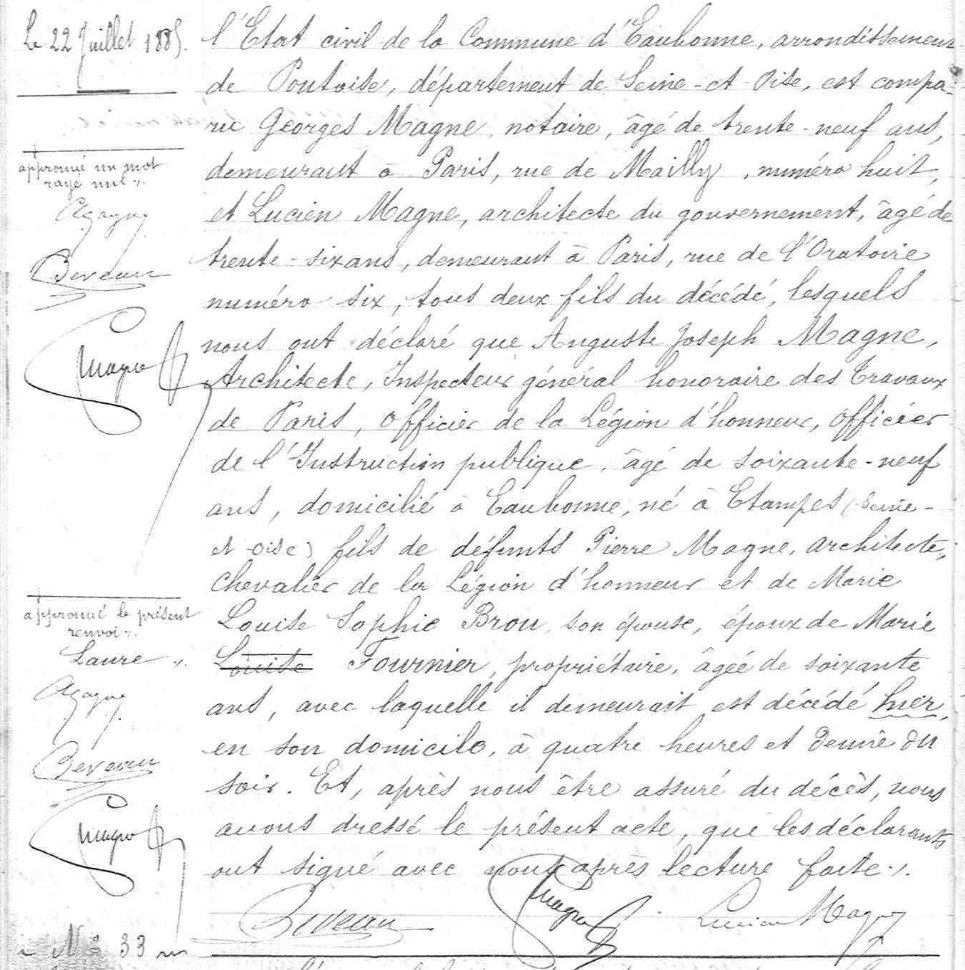 Le 22 Juillet 1885.
approuvé un mot
rayé nul
Beveau
Magne
approuvé le présent
renvoi
Laure
Beveau
Magne
N° 33
l'Etat civil de la Commune d'Eaubonne, arrondissement
de Pontoise, département de Seine-et-Oise, est compa-
ru Georges Magne, notaire, âgé de trente-neuf ans,
demeurant à Paris, rue de Mailly, numéro huit,
et Lucien Magne, architecte du gouvernement, âgé de
trente-six ans, demeurant à Paris, rue de l'Oratoire
numéro six, tous deux fils du décédé, lesquels
nous ont déclaré que Auguste Joseph Magne,
Architecte, Inspecteur général honoraire des Travaux
de Paris, Officier de la Légion d'honneur, Officier
de l'Instruction publique, âgé de soixante-neuf
ans, domicilié à Eaubonne, né à Etampes (Seine-
et-Oise) fils de défunts Pierre Magne, architecte,
Chevalier de la Légion d'honneur et de Marie
Louise Sophie Brou, son épouse, époux de Marie
Louise Fournier, propriétaire, âgée de soixante
ans, avec laquelle il demeurait est décédé hier,
en son domicile, à quatre heures et demie du
soir. Et, après nous être assuré du décès, nous
avons dressé le présent acte, que les déclarants
ont signé avec nous après lecture faite.
Beveau Magne Lucien Magne